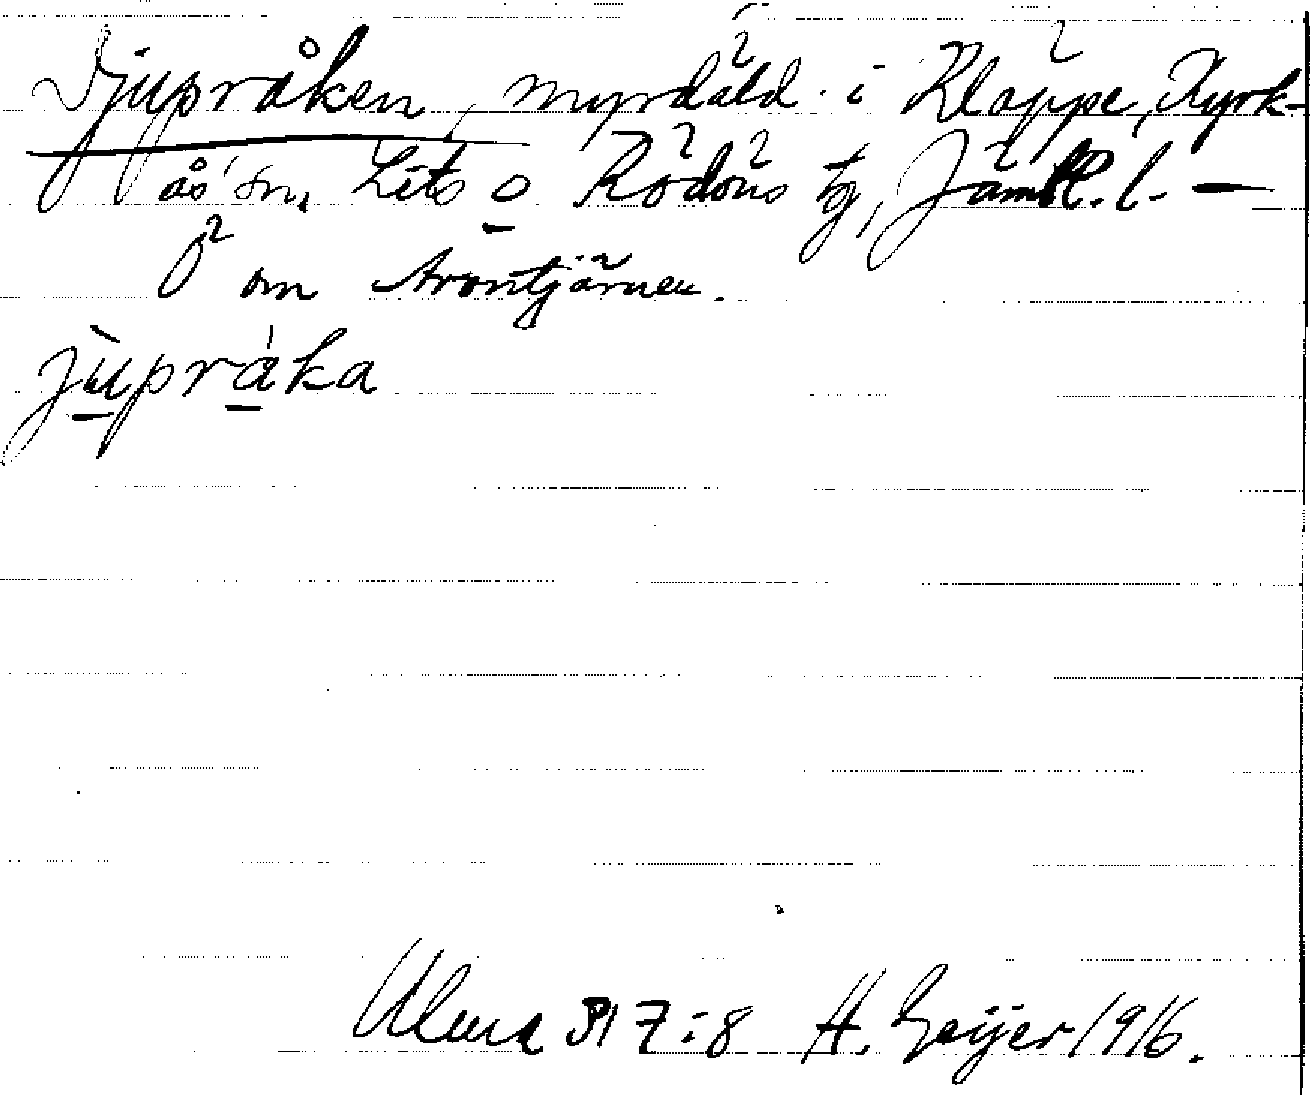 Djupråken, myrdäld i Kläppe, Kyrk-
ås sn, Lits o Rödöns tg, Jämtl. l. —
om Arontjärnen.
jupråka
Ulma 317:8 H. Geijer 1916.